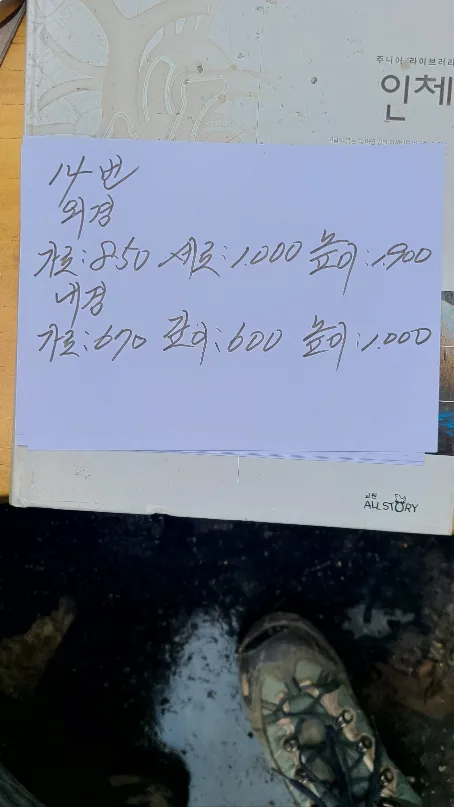 주니어 라이브러리
인체
14번
외경
가로:850 세로:1.000 높이:1.900
내경
가로:670 깊이:600 높이:1.000
교원
ALL STORY